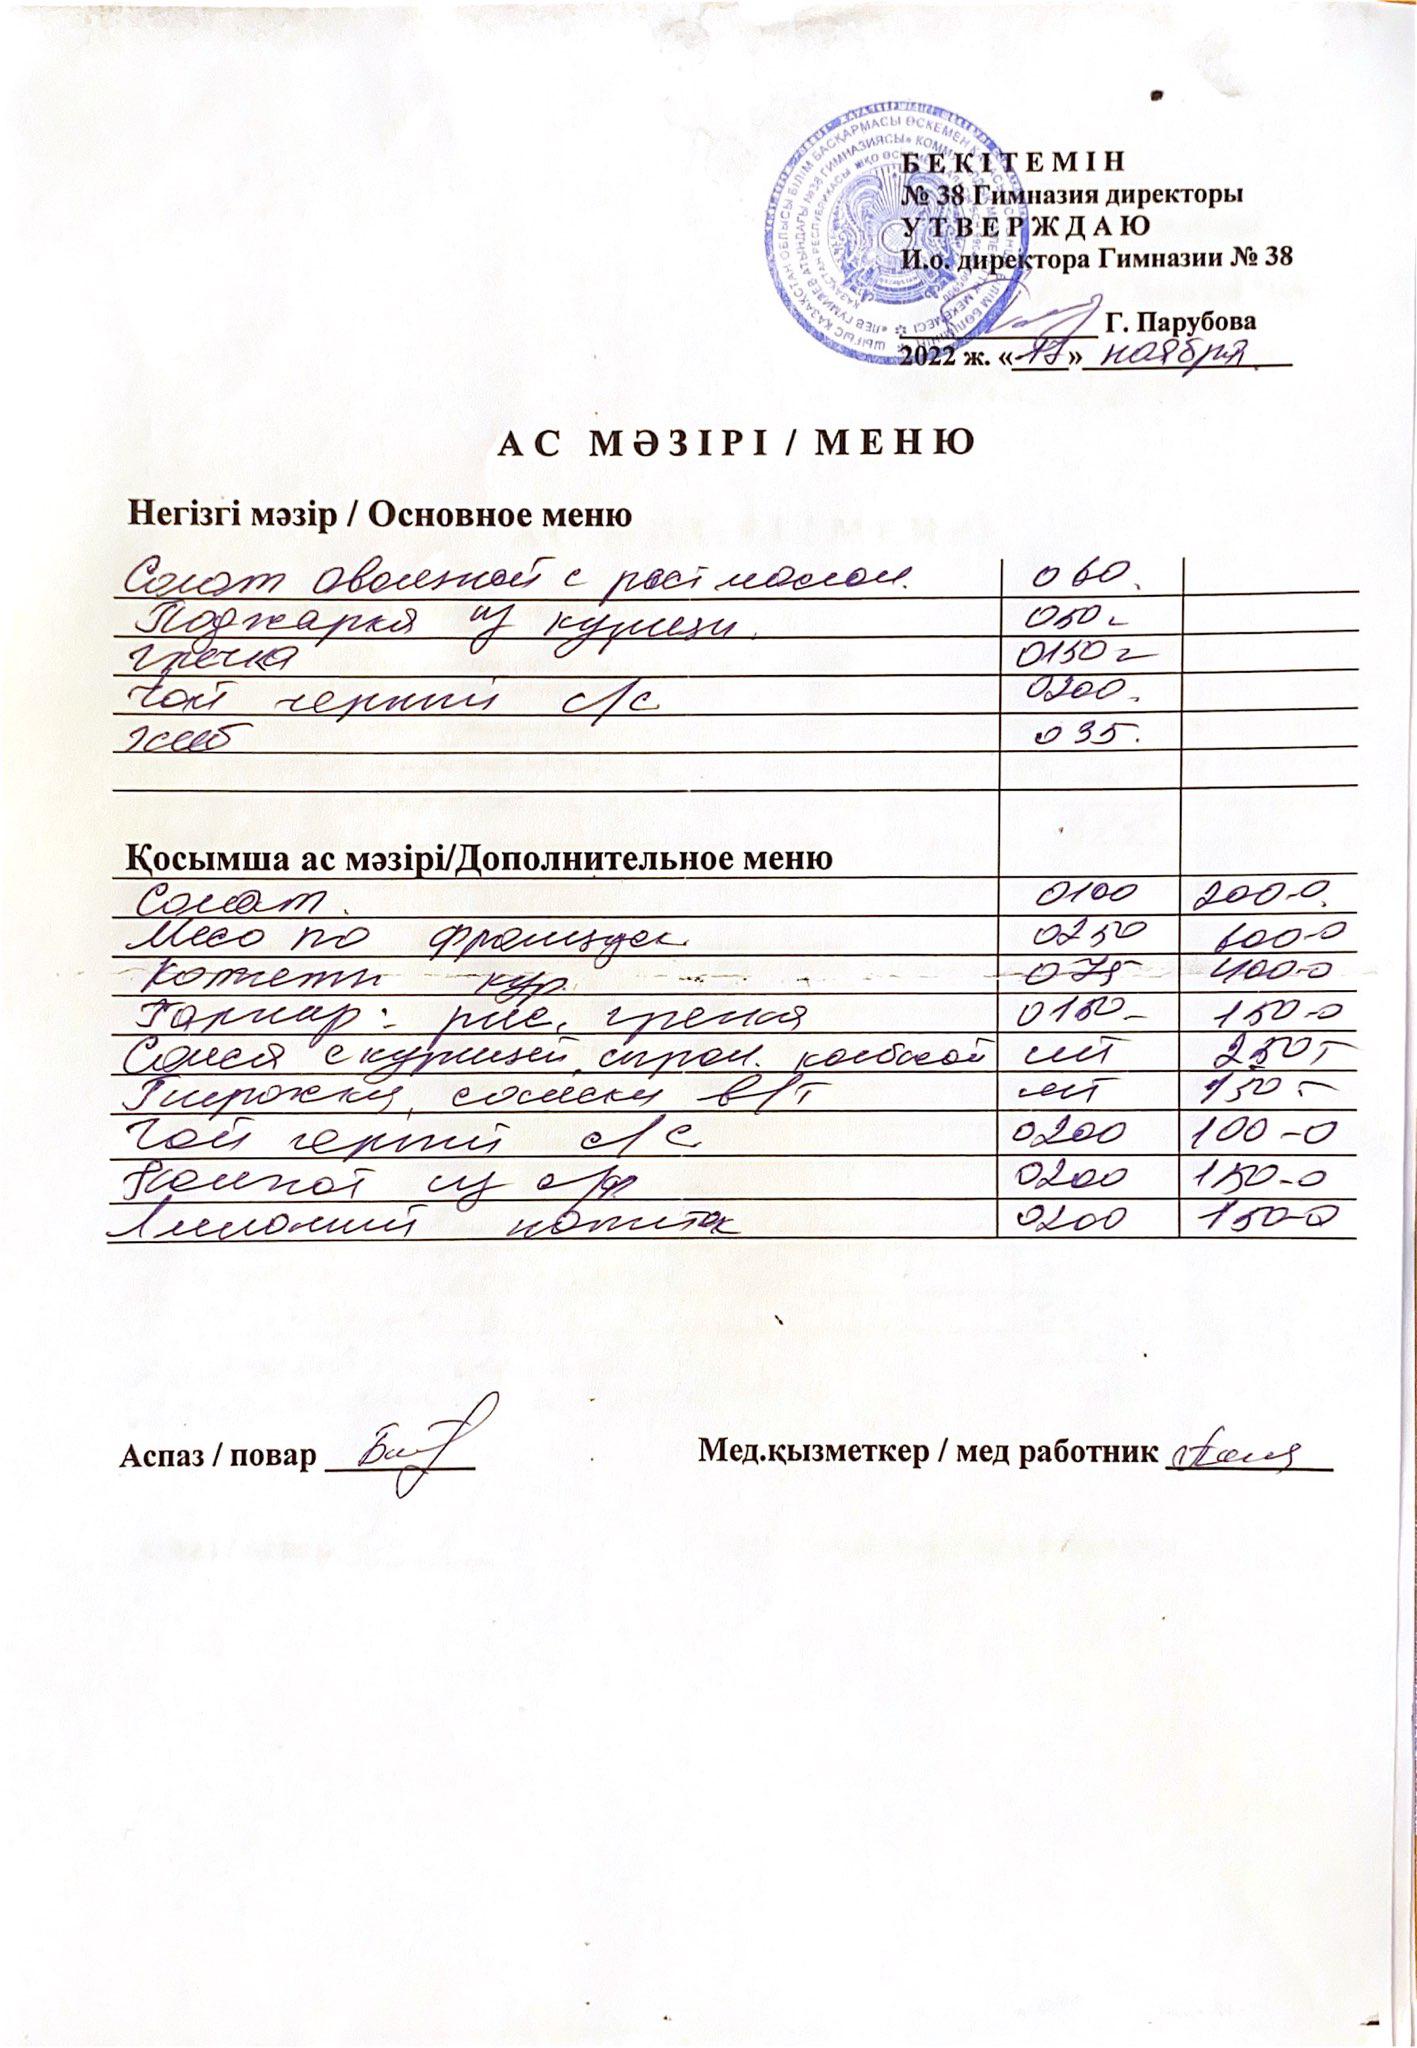 БЕКІТЕМІН
№ 38 Гимназия директоры
УТВЕРЖДАЮ
И.о. директора Гимназии № 38
Г. Парубова
2022 ж. «17» ноября.
АС МӘЗІРІ / МЕНЮ
Негізгі мәзір / Основное меню
Салат овощной с раст маслом. 060.
Поджарка из курицы. 050г
Гречка 0150г
Чай черный с/с 0200.
Хлеб 035.
Қосымша ас мәзірі/Дополнительное меню
Салат. 0100 200-0.
Мясо по француск. 0250 600-0
Котлеты кур. 075 400-0
Гарнир: рис, гречка 0150- 150-0
Самса с курицей, сыром. колбасой шт 250т
Пирожки, сосиски в/т шт 150-
Чай черный с/с 0200 100-0
Компот из с/ф 0200 150-0
Лимонный напиток 0200 150-0
Аспаз / повар Мед.қызметкер / мед работник